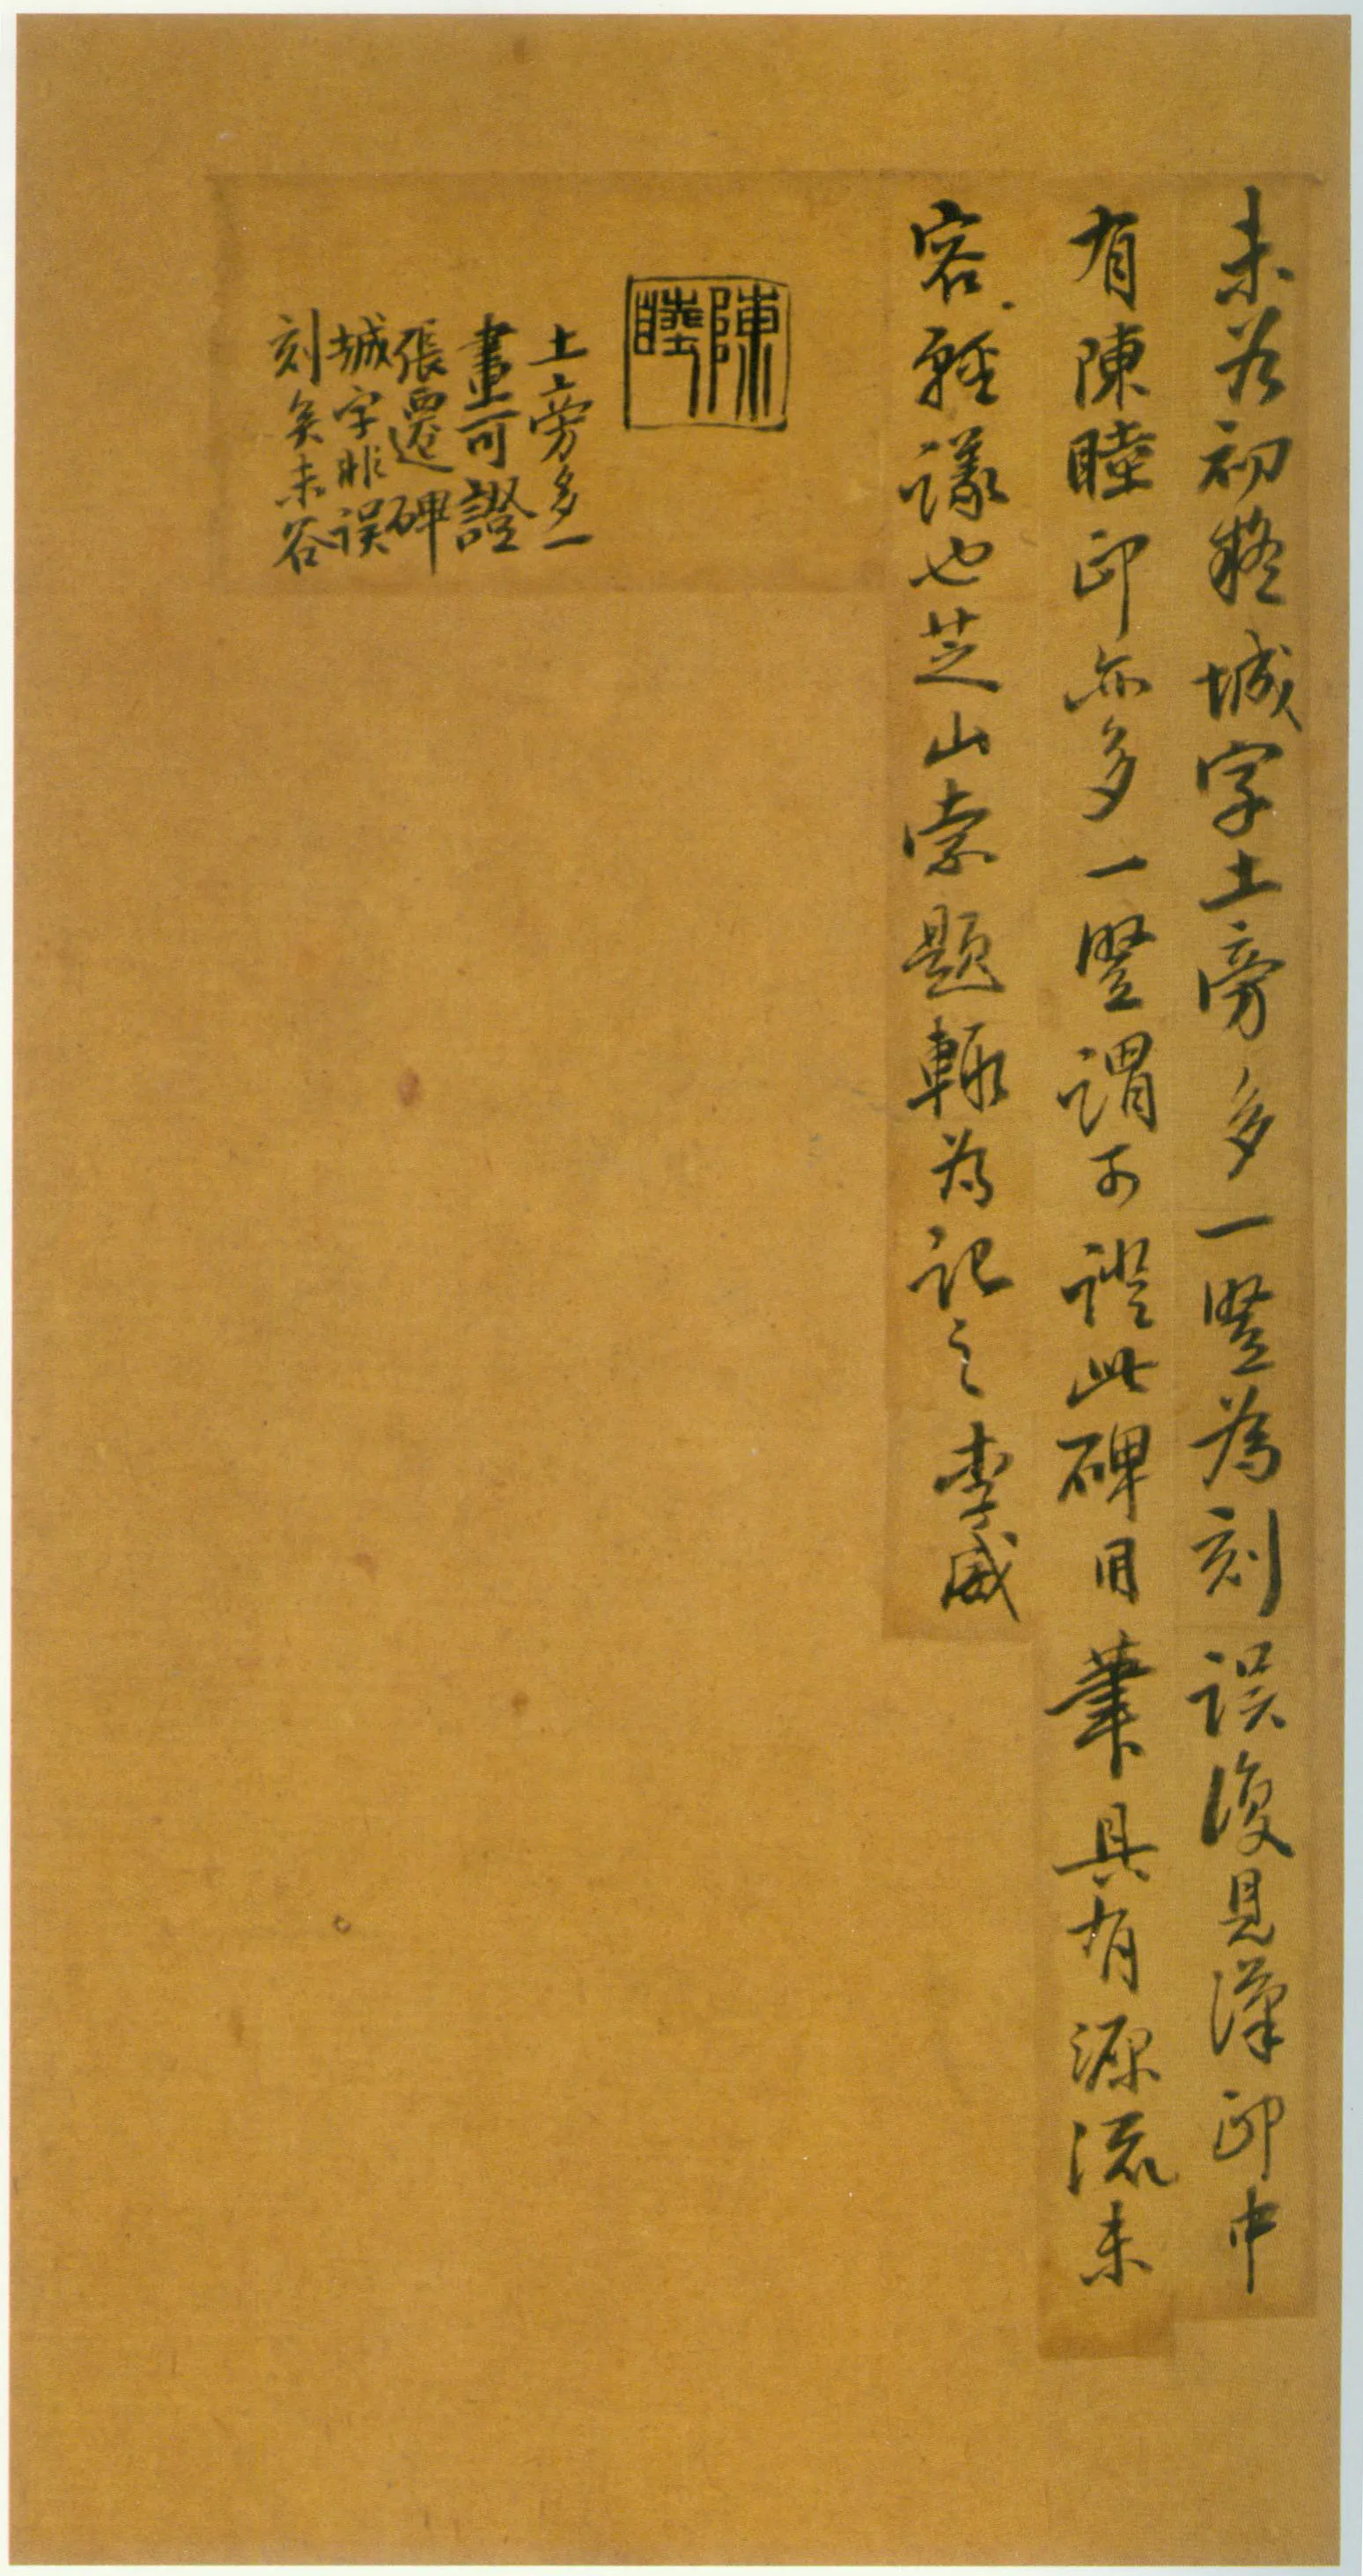 未谷初疑城字土旁多一豎為刻误復見漢印中
有陳睦印亦多一豎謂可證此碑用筆具有源流未
容輕議也芝山索題輒為記之李威
陳睦
土旁多一
畫可證
張遷碑
城字非误
刻矣未谷